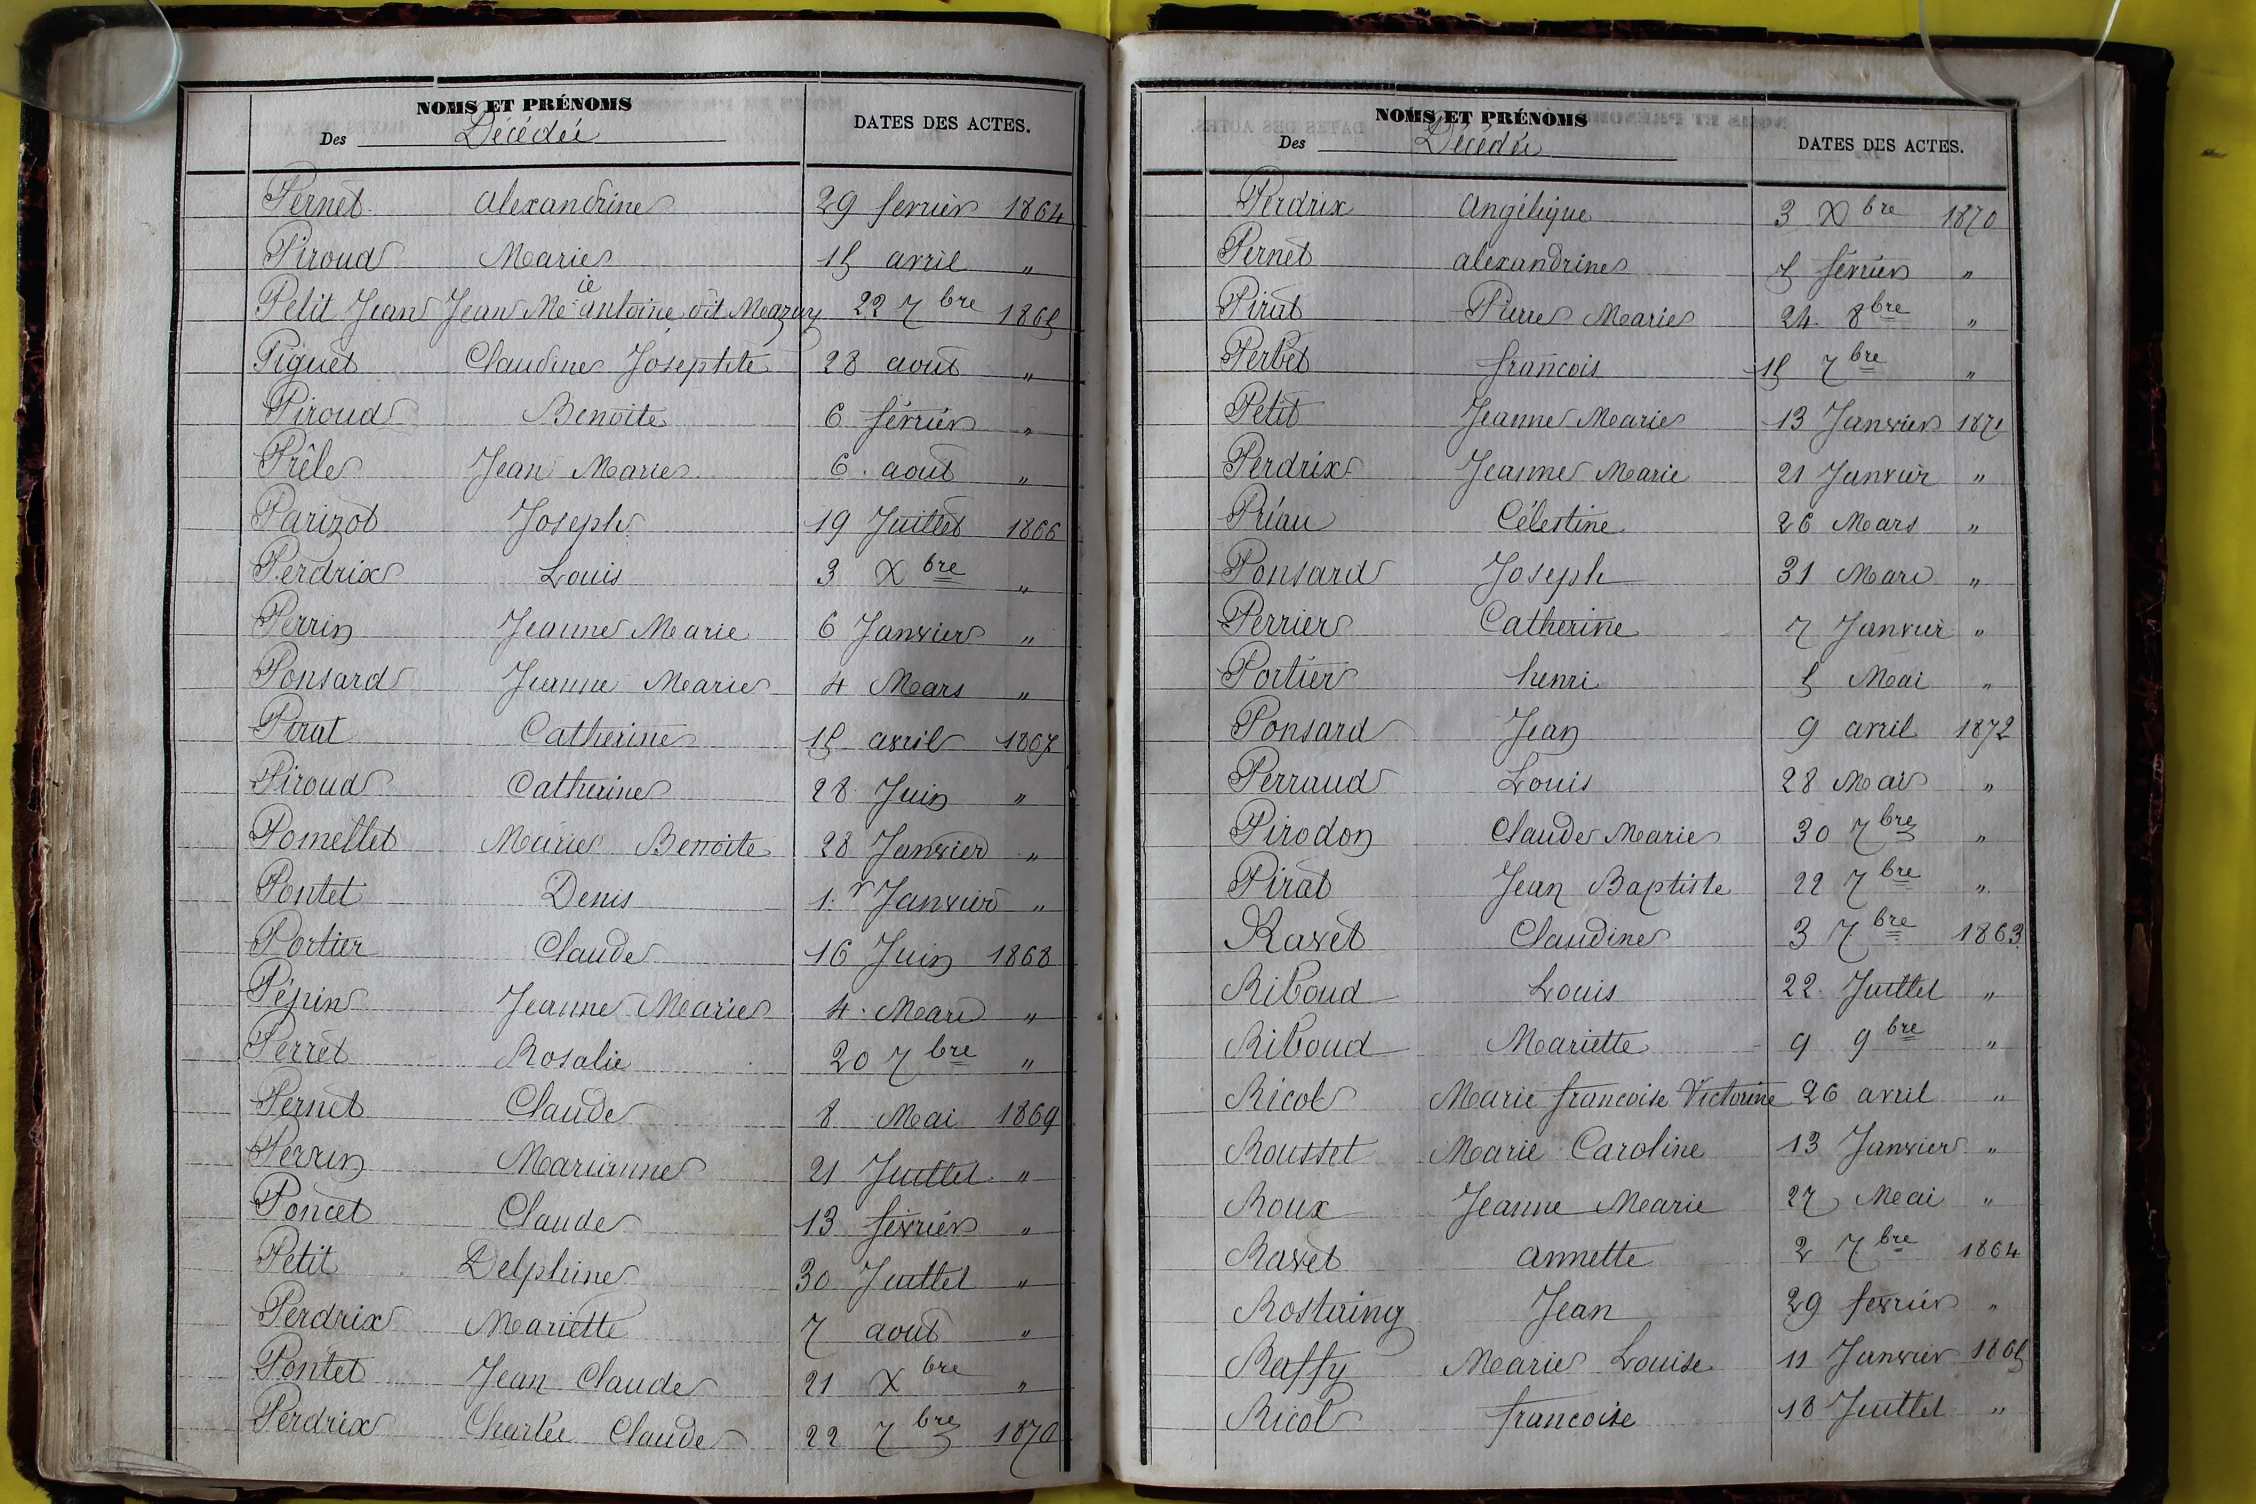 NOMS ET PRÉNOMS
Des Décédés
DATES DES ACTES.
Pernet Alexandrine 29 fevrier 1864
Piroud Marie 15 avril "
Petit Jean Jean Me ie antoine dit Mazuy 22 7bre 1865
Piguet Claudine Josephte 28 aout "
Piroud Benoite 6 février "
Prêle Jean Marie 6 aout "
Parizot Joseph 19 Juillet 1866
Perdrix Louis 3 Xbre "
Perrin Jeanne Marie 6 Janvier "
Ponsard Jeanne Marie 4 Mars "
Pirat Catherine 15 avril 1867
Piroud Catherine 28 Juin "
Pomellet Marie Benoite 28 Janvier "
Pontet Denis 1.r Janvier "
Portier Claude 16 Juin 1868
Pépin Jeanne Marie 4 Mars "
Perret Rosalie 20 7bre "
Pernet Claude 8 Mai 1869
Perrin Marianne 21 Juillet "
Poncet Claude 13 février "
Petit Delphine 30 Juillet "
Perdrix Mariette 7 aout "
Pontet Jean Claude 21 Xbre "
Perdrix Charles Claude 22 7bre 1870
NOMS ET PRÉNOMS
Des Décédés
DATES DES ACTES.
Perdrix Angélique 3 Xbre 1870
Pernet alexandrine 5 février "
Pirat Pierre Marie 24 8bre "
Perbet francois 15 7bre "
Petit Jeanne Marie 13 Janvier 1871
Perdrix Jeanne Marie 21 Janvier "
Préau Célestine 26 Mars "
Ponsard Joseph 31 Mars "
Perrier Catherine 7 Janvier "
Portier henri 5 Mai "
Ponsard Jean 9 avril 1872
Perraud Louis 28 Mars "
Pirodon Claude Marie 30 7bre "
Pirat Jean Baptiste 22 7bre "
Ravet Claudine 3 7bre 1863
Riboud Louis 22 Juillet "
Riboud Mariette 9 9bre "
Ricol Marie francoise Victorine 26 avril "
Rousset Marie Caroline 13 Janvier "
Roux Jeanne Marie 27 Mai "
Ravet annette 2 7bre 1864
Rostaing Jean 29 fevrier "
Raffy Marie Louise 11 Janvier 1865
Ricol francoise 18 Juillet "